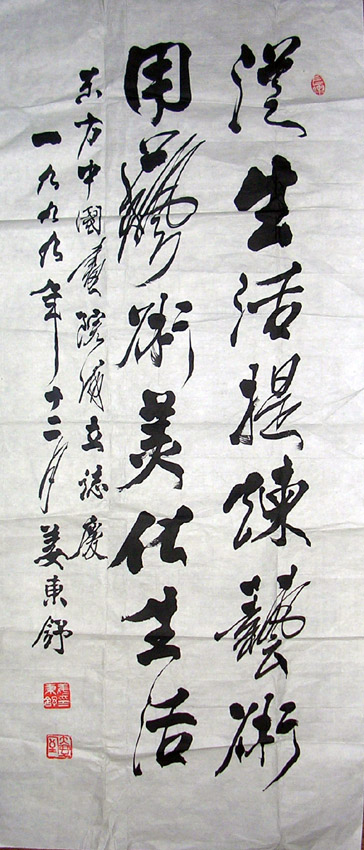 從生活提煉藝術
用藝術美化生活
东方中國畫院成立誌慶
一九九九年十二月姜東舒